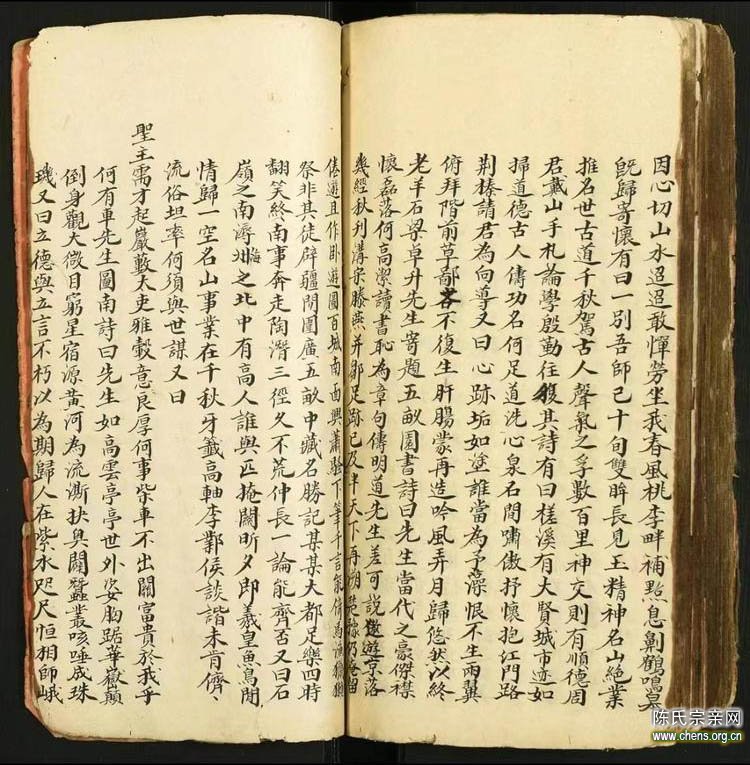 因心切山水迢迢敢憚勞坐我春風桃李畔補點息劓鶴鳴臯
既歸寄懷有曰一別吾師已十旬雙眸長見玉精神名山絶業
推名世古道千秋駕古人聲氣之孚數百里神交則有順德周
君戴山手札論學殷勤往復其詩有曰槎溪有大賢城市迹如
掃道德古人儔功名何足道洗心泉名閒嘯傲抒懷抱江門路
荆榛請君為向導又曰心跡垢如塗誰當為予藻恨不生兩翼
俯拜階前草鄙吝不復生肝腸蒙再造吟風弄月歸悠然以終
老羊石梁卓升先生寄題五畝園書詩曰先生當代之豪傑襟
懷磊落何高潔讀書恥為章句儔明道先生差可説遨遊京落
幾經秋列溝宋滕燕并鄒足跡已及半天下再朔楚豫仍淹留
倦遊且作卧遊圖百城南面興蕭騷下筆千言能倚馬漁獵獺
祭非其徒辟疆閒園廣五畝中藏名勝記某某大都足樂四時
翻笑終南事奔走陶潛三徑久不荒仲長一論能齊否又曰石
嶺之南潯洲之北中有高人誰與匹掩關昕夕即羲皇魚鳥閒
情歸一空名山事業在千秋牙籤高軸李鄴侯談諧未肯儕〻
流俗坦率何須與世謀又曰
聖主需才起巖藪大吏雅轂意良厚何事柴車不出關富貴於我乎
何有車先生圖南詩曰先生如高雲亭亭世外姿胸踞華嶽巔
倒身觀大微目窮星宿源黃河為流澌抉奥闢蠶叢咳唾成珠
璣又曰立德與立言不朽以為期歸人在紫水咫尺恒相師峨
陈氏宗亲网
www.chens.org.cn